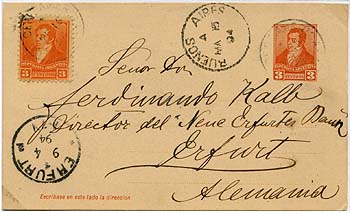 BUENOS AIRES
MA 15
94
3 CENTAVOS 3
3 CENTAVOS 3
Señor Don
Ferdinando Kalb
Director del "Neue Erfurter
Erfurt
Alemania
ERFURT
9 4
94
Escríbase en este lado la direccion